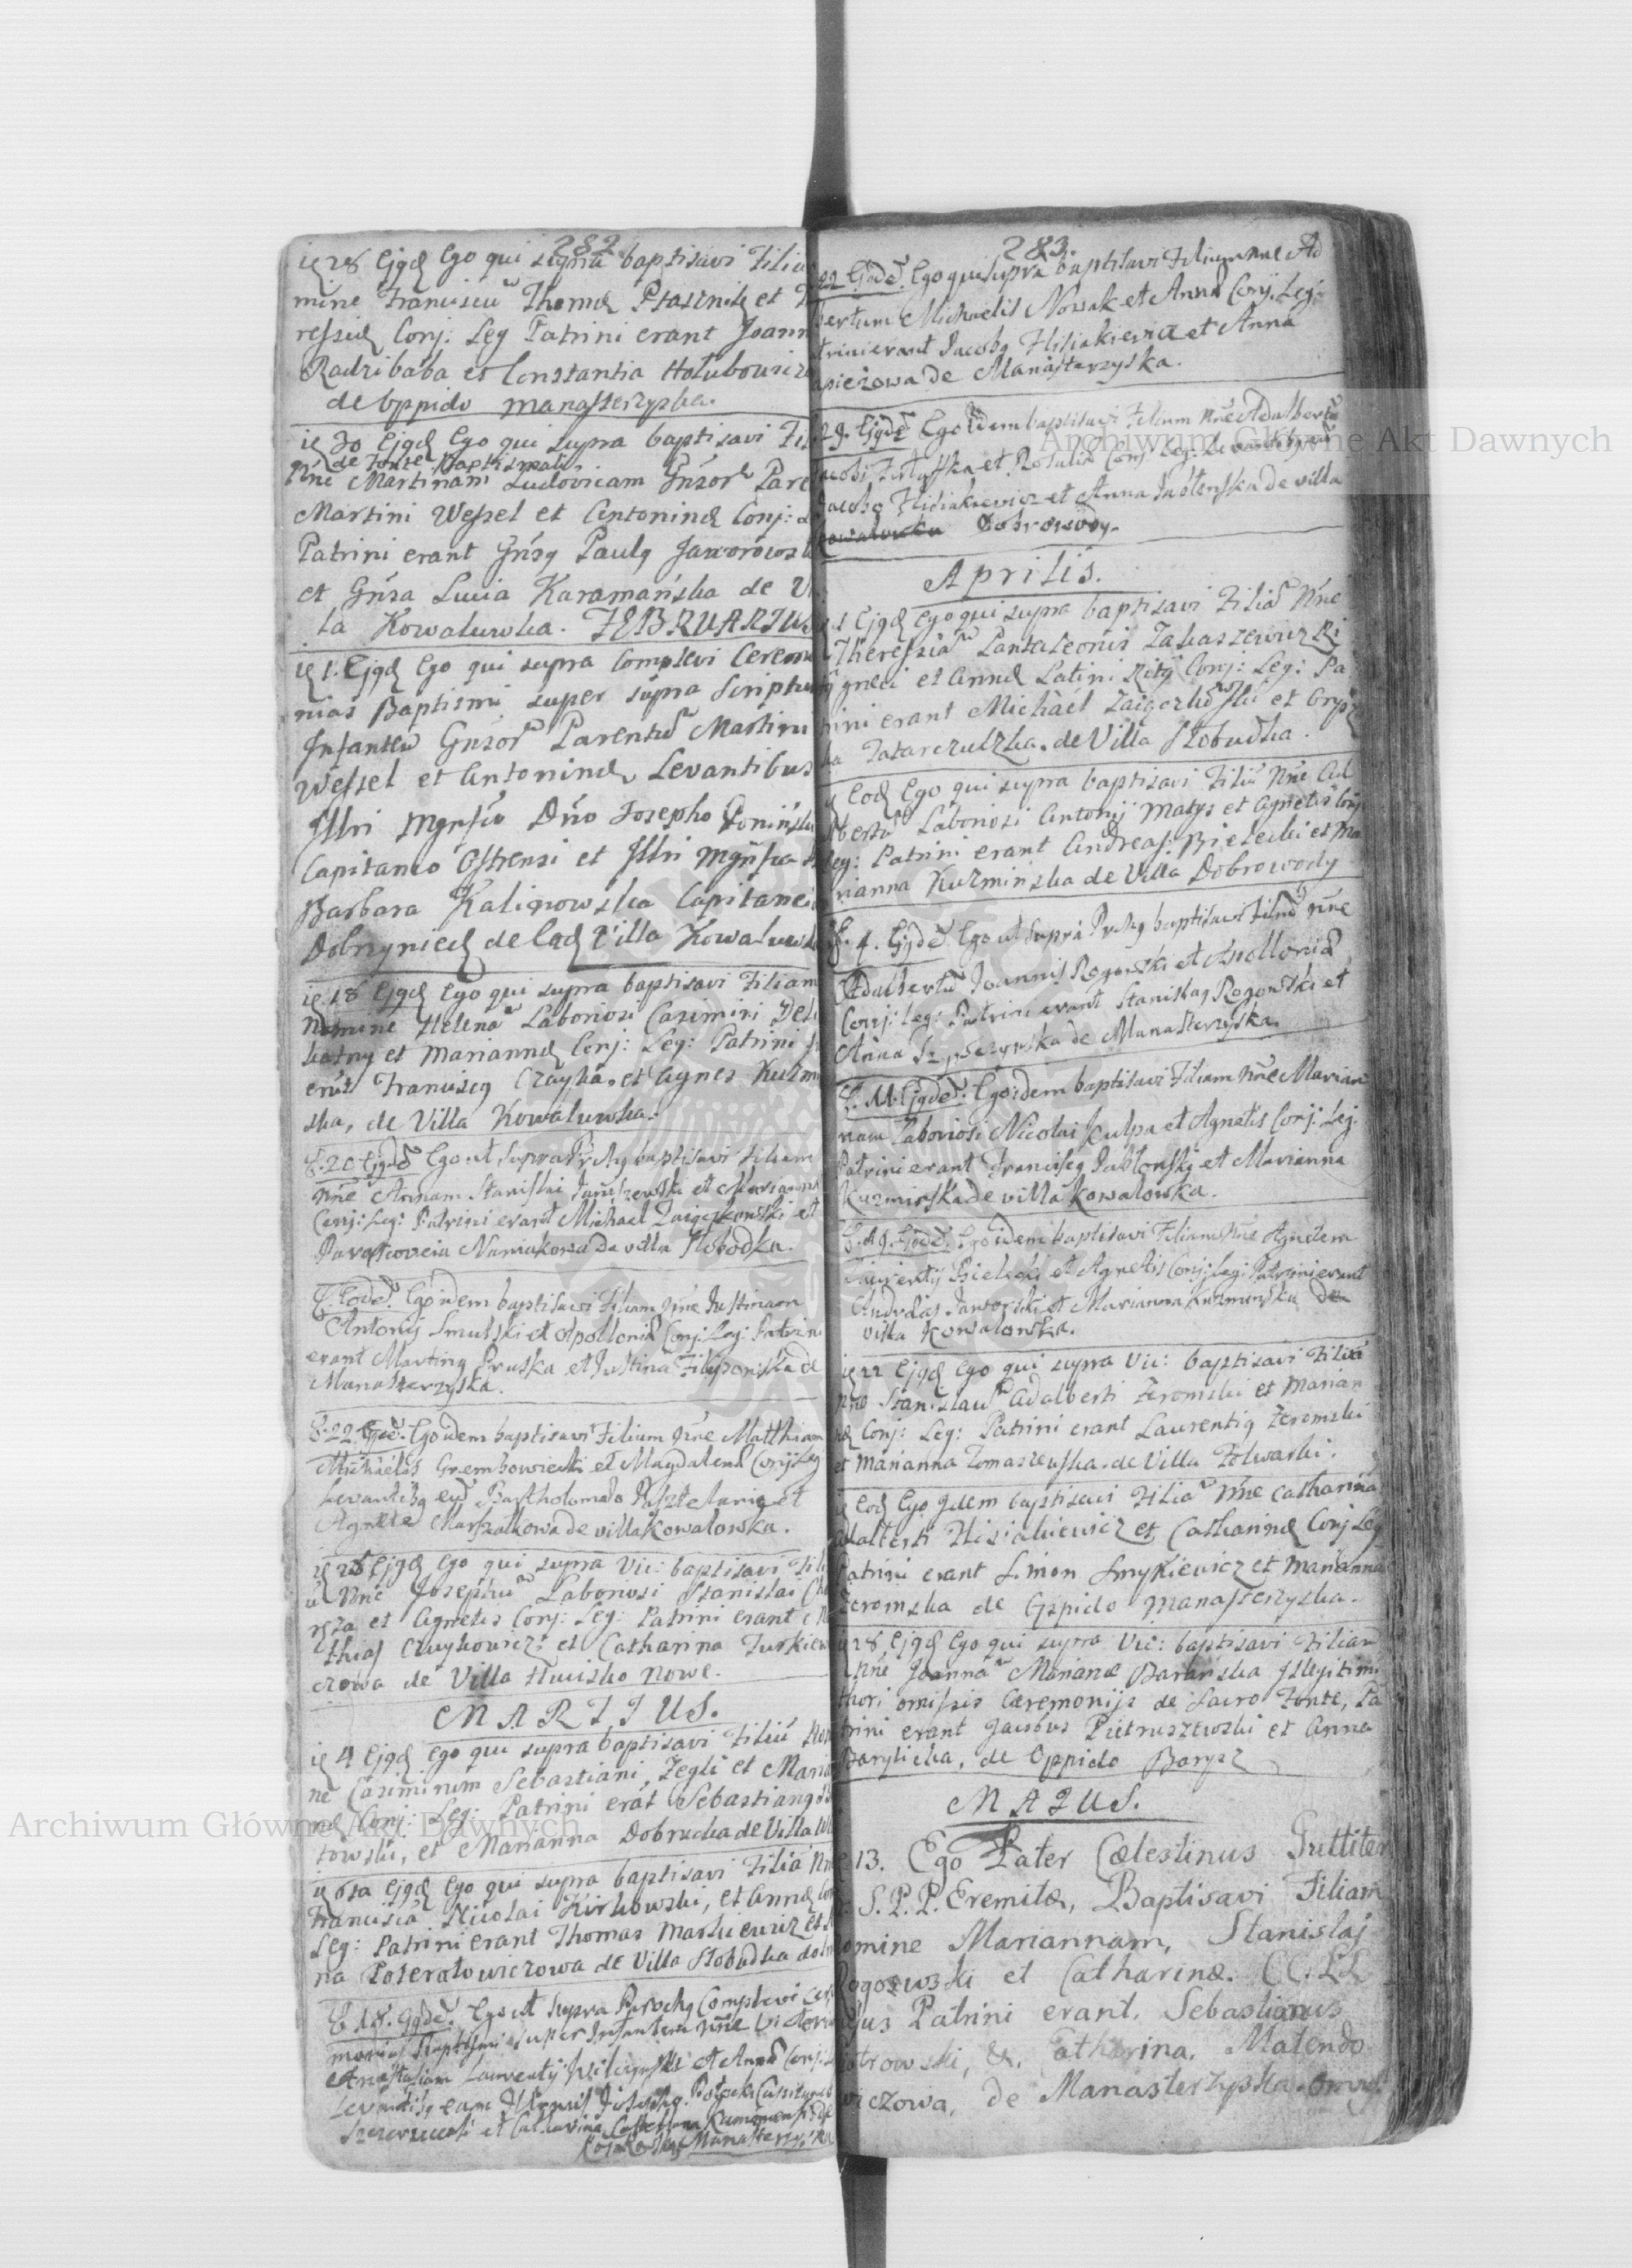 282
ię 28 Ejqd Ego qui supra baptisavi Filiu
mine Franciscu Thomæ Ptasznik et T
ressiæ Conj: Leg Patrini erant Joann
Radzibaba et Constantia Hołubowicz
de Oppido Manasterzyska.
ię 30 Ejqd Ego qui supra baptisavi Fil
de Fonte Baptismatis
Nne Martinam Ludovicam Gnsor Pare
Martini Wessel et Antoninæ Conj:
Patrini erant Gnsq Paulq Jaworowsk
et Gnsa Lucia Karamańska de Vi
la Kowaluwka. FEBRUARIUS
ię 1. Ejqd Ego qui supra Complevi Ceremo
nias Baptismi super supra Scriptum
Infantem Gnsor Parentu Martini
Wessel et Antoninæ Levantibus
Illri Mgnfco Dno Josepho Poniński
Capitaneo Ostrensi et Illri Mgnfca
Barbara Kalinowska Capitanei
Dobrzynieck de Eadem Villa Kowaluwk
ię 18 Ejqd Ego qui supra baptisavi Filiam
Nomine Helena Laboriosi Casimiri Deli
katny et Mariannæ Conj: Leg: Patrini
erat Franciscq Czayka, et Agnes Kuzmi
ska, de Villa Kowaluwka.
E. 20 Ejqde Ego ut Supra Prchq baptisavi Filiam
Nne Annam Stanislai Januszewski et Marianna
Conj: Leg: Patrini erant Michael Zaigczkowski et
Parascoveia Naniakowa de villa Słobodka.
E. Eode. Ego idem baptisavi Filiam Nne Justinam
Antonij Smulski et Apolloniæ Conj: Leg: Patrin
erant Martinq Pruska et Justina Filiponska de
Manasterzyska.
E. 22 Ejqde. Ego idem baptisavi Filium Nne Matthiam
Michaelis Grembowiecki et Magdalenæ Conj Leg
Levantibq eud Bartholomæo Pasztelaniq et
Agnete Marszalkowa de villa Kowalowka.
ię 28 Ejqd Ego qui supra Vic: baptisavi Fili
u Nne Josephu Laboriosi Stanislai
rsza et Agnetis Conj: Leg: Patrini erant
thias Czuykowicz et Catharina Turkiew
czowa de Villa Huwisko Nowe.
MARTIUS.
ię 4 Ejqd Ego qui supra baptisavi Filiu Nom
ne Casimirum Sebastiani Zegli et Maria
næ Conj: Leg: Patrini erat Sebastianq
towski, et Marianna Dobrucka de Villa
ię 6ta Ejqd Ego qui supra baptisavi Filia Nne
Francisca Nicolai Kirkowski, et Annæ Con
Leg: Patrini erant Thomas Maskiewicz et
na Poseratowiczowa de Villa Słobudka
E. 18. Ejqde. Ego ut Supra Parochq Complevi Cere
monias Baptismi super Infantem Nne Victoriam
Anastasiam Laurentij et Annæ Conj:
Levantibq eam Illrmis Josepho Potocki Capitaneo
et Catharina Castellana Kaminensi de
Kossakowska Manasterzyska
283.
22 Ejqde. Ego qui supra baptisavi Filium Nne Ad
bertum Michaelis Nowak et Annæ Conj. Leg:
trini erant Jacobq Hisiakiewicz et Anna
apieżowa de Manasterzyska.
29. Ejqde Ego idem baptisavi Filium Nne Adalbertu
Jacobi et Rosaliæ Conj: Leg: Levantibq eu
Jacobq Hisiakiewicz et Anna Jasłenska de villa
Kowalowka Dobrowody.
Aprilis.
1 Ejqd Ego qui supra baptisavi Filia Nne
Theressia Pantaleonis Zakaszewicz Ri
græci et Annæ Latini Ritq Conj: Leg: Pa
trini erant Michael Zaigczkowski et Orysz
ka Tatarczuczka de Villa Słobudka.
Eod Ego qui supra baptisavi Filiu Nne Ad
lbertu Laboriosi Antonij Matys et Agnetis Conj
leg: Patrini erant Andreas Bielecki et Ma
rianna Kuzmińska de Villa Dobrowody
E. 4. Ejqde Ego ut Supra Prchq baptisavi Filiu Nne
Adalbertu Joannis Rogowski et Apolloniæ
Conj: Leg: Patrini erant Stanislaq Rogowski et
Anna de Manasterzyska.
E. 11. Ejqde. Ego idem baptisavi Filiam Nne Marian
nam Laboriosi Nicolai Kulpa et Agnetis Conj: Leg.
Patrini erant Franciscq Jabłonski et Marianna
Kuzminska de villa Kowalowka.
E. 19. Ejqde. Ego idem baptisavi Filiam Nne Agnetem
Laurentij Bielecki et Agnetis Conj: Leg: Patrini erant
Andreas Jaworski et Marianna Kuzminska de
villa Kowalowka.
ię 22 Ejqd Ego qui supra Vic: baptisavi Filiu
Nne Stanislau Adalberti Żeromski et Marian
næ Conj: Leg: Patrini erant Laurentiq Żeromski
et Marianna Tomaszewska de Villa Folwarki.
Eod Ego Idem baptisavi Filia Nne Catharina
Adalberti Hisiakiewicz et Catharinæ Conj Leg
Patrini erant Simon Smykiewicz et Marianna
Żeromska de Oppido Manasterzyska.
28 Ejqd Ego qui supra Vic: baptisavi Filiam
Nne Joanna Marianæ Barańska Illegitimi
thori omissis Cæremonijs de Sacro Fonte, Pa
trini erant Jacobus Pietruszewski et Anna
Baryłicka, de Oppido Barysz
MAIUS.
13. Ego Pater Cælestinus Guttiter
S. P. P. Eremitæ, Baptisavi Filiam
omine Mariannam, Stanislaj
Rogoswski et Catharinæ. CC. LL
ejus Patrini erant. Sebastianus
iotrowski, &. Catharina. Matendo
wiczowa, de Manasterzyska
Archiwum Główne Akt Dawnych
Archiwum Główne Akt Dawnych